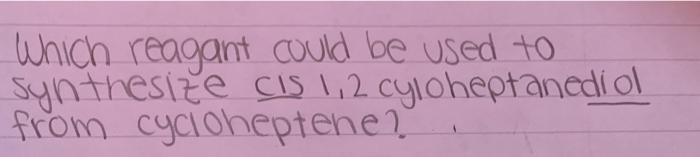 Which reagant could be used to
synthesize cis 1,2 cycloheptanediol
from cycloheptene?